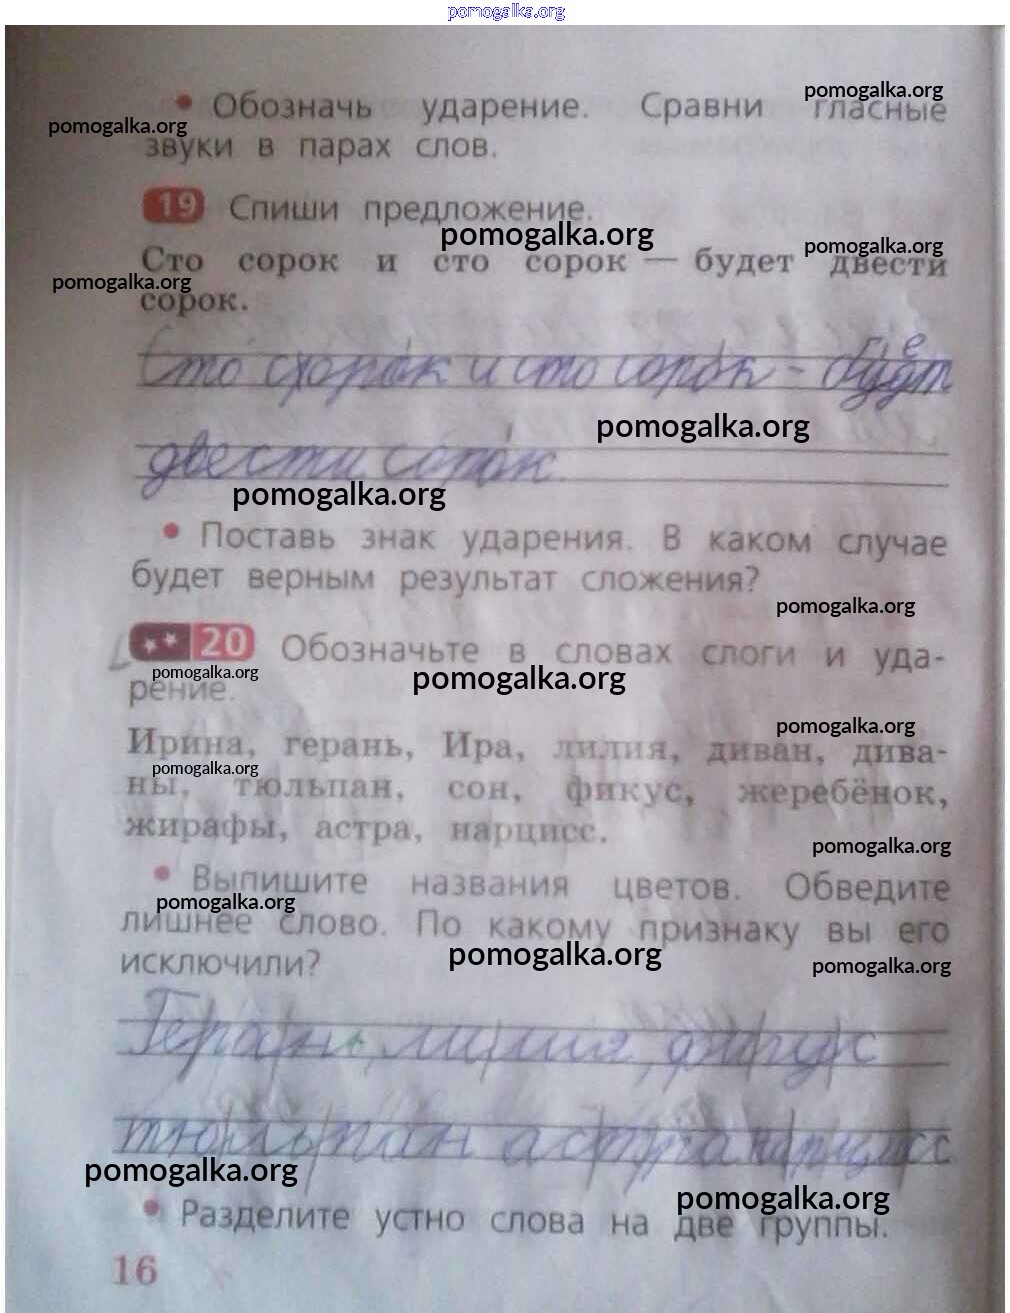 pomogalka.org
pomogalka.org
• Обозначь ударение. Сравни гласные
pomogalka.org
звуки в парах слов.
19 Спиши предложение.
pomogalka.org
pomogalka.org
Сто сорок и сто сорок — будет двести
pomogalka.org
сорок.
Сто сорок и сто сорок - будет
pomogalka.org
двести соток
pomogalka.org
• Поставь знак ударения. В каком случае
будет верным результат сложения?
pomogalka.org
20 Обозначьте в словах слоги и уда-
pomogalka.org
pomogalka.org
рение.
pomogalka.org
Ирина, герань, Ира, лилия, диван, дива-
pomogalka.org
ны, тюльпан, сон, фикус, жеребёнок,
жирафы, астра, нарцисс.
pomogalka.org
• Выпишите названия цветов. Обведите
pomogalka.org
лишнее слово. По какому признаку вы его
pomogalka.org
исключили?
pomogalka.org
Герань, лилия, фигус
тюльпан астра нарцисс
pomogalka.org
pomogalka.org
• Разделите устно слова на две группы.
16